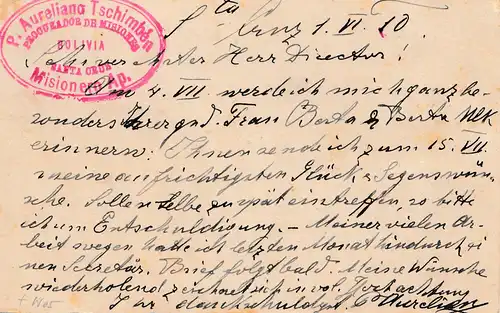 P. Aureliano Tschimbén
PROCURADOR DE MISIONES
BOLIVIA
SANTA CRUZ
Misionero Ap.
Sta Cruz 1. VI. 10.
Sehr verehrter Herr Director!
Am 4. VII. werde ich mich ganz be-
sonders Ihrer gnd. Frau Berta &
erinnern: Ihnen sende ich zum 15. VII.
meine aufrichtigsten Glück & Segenswün-
sche. Sollen selbe zu spät eintreffen, so bitte
ich um Entschuldigung. – Meiner vielen Ar-
beit wegen hatte ich letzten Monat hindurch ei-
nen Secretär. Brief folgt bald. Meine Wünsche
wiederholend zeichnet sich in vol. Hochachtung
Ihr dankschuldgst. P Aurelian